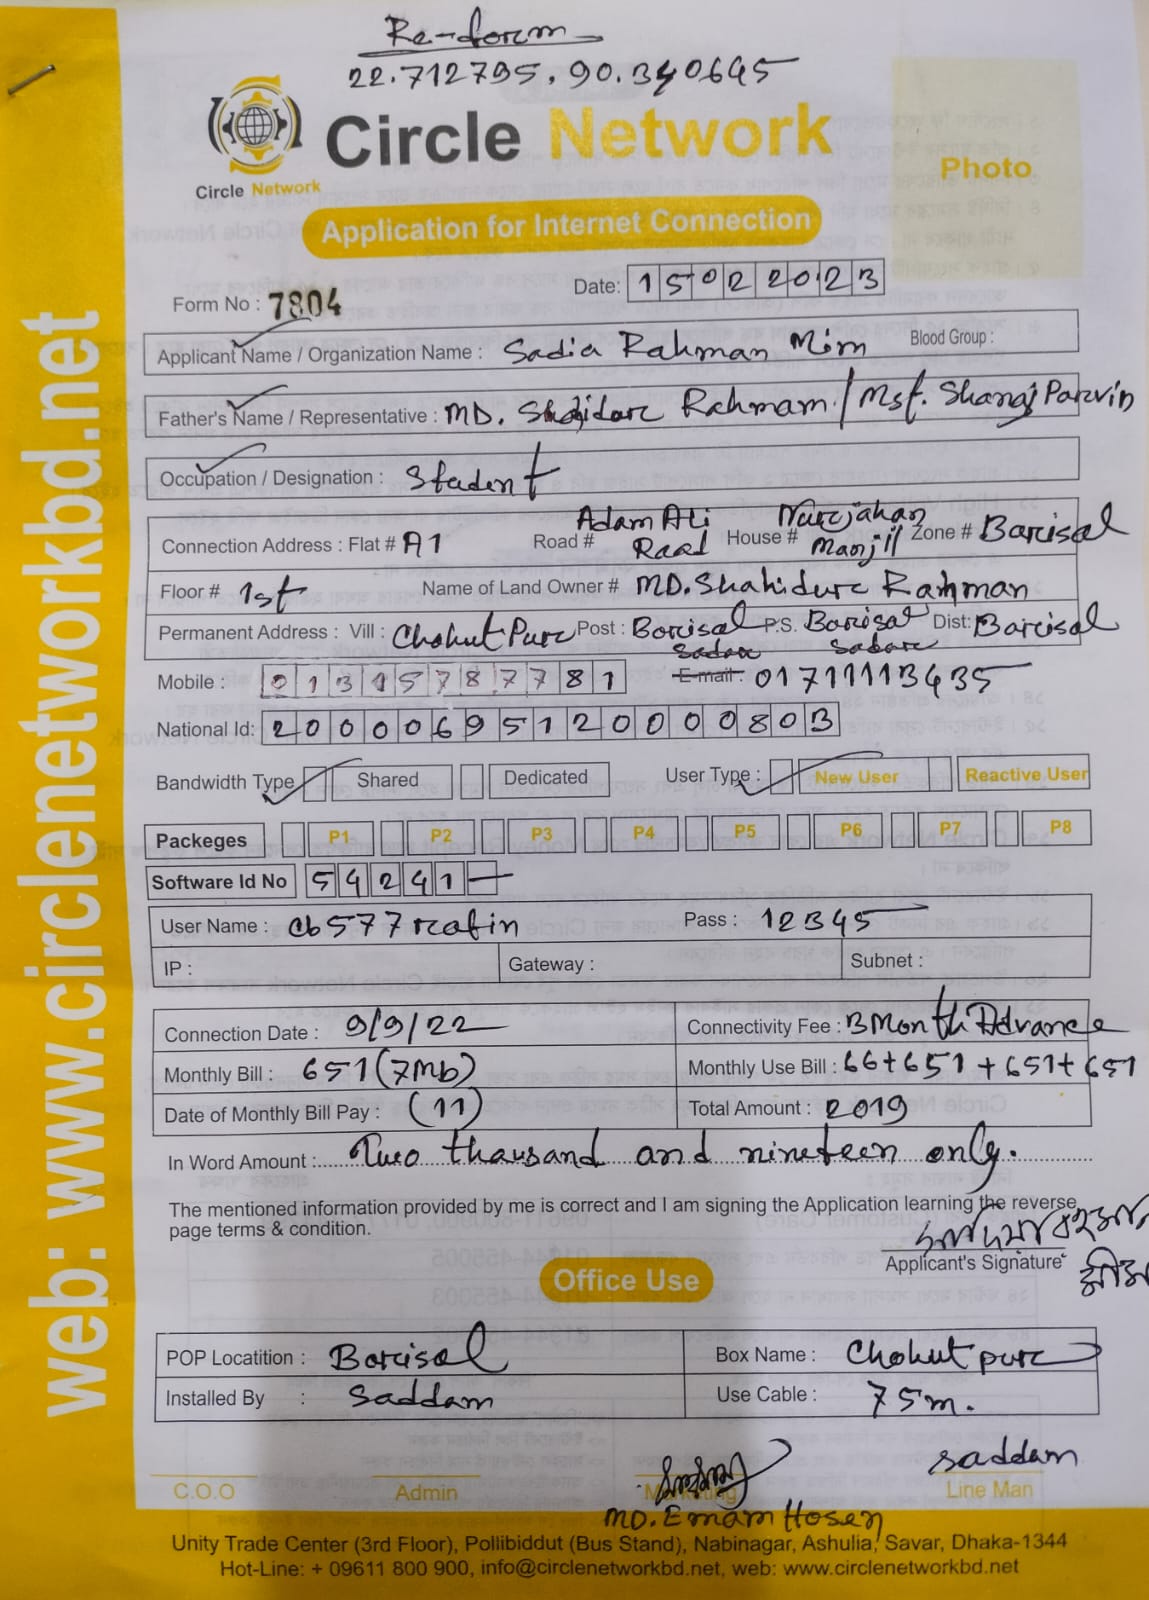 Re-form
22.712795, 90.340645
Circle Network
Circle Network
Photo
Application for Internet Connection
Date: 15022023
Form No : 7804
Applicant Name / Organization Name : Sadia Rahman Mim Blood Group :
Father's Name / Representative : MD. Rahmam / Mst. Sharaj Parvin
Occupation / Designation : Stadent
Connection Address : Flat # A1 Road # Adam Ali Raad House # Nurjahan Manjil Zone # Barisal
Floor # 1st Name of Land Owner # MD. Shahidur Rahman
Permanent Address : Vill : Chohut Pur Post : Barisal Sadar P.S. Barisal Sadar Dist: Barisal
Mobile : 01315787781 E-mail : 01711113435
National Id: 20000695120000803
Bandwidth Type Shared Dedicated User Type : New User Reactive User
Packeges P1 P2 P3 P4 P5 P6 P7 P8
Software Id No 54241
User Name : cb577rafin Pass : 12345
IP : Gateway : Subnet :
Connection Date : 9/9/22 Connectivity Fee : 3 Month Advance
Monthly Bill : 651 (7mb) Monthly Use Bill : 66+651+651+651
Date of Monthly Bill Pay : (11) Total Amount : 2019
In Word Amount : Two thausand and nineteen only.
The mentioned information provided by me is correct and I am signing the Application learning the reverse
page terms & condition.
Applicant's Signature
Office Use
POP Locatition : Barisal Box Name : Chohut pur
Installed By : Saddam Use Cable : 75m.
saddam
C.O.O Admin Marketing Line Man
MD. Emam Hosen
Unity Trade Center (3rd Floor), Pollibiddut (Bus Stand), Nabinagar, Ashulia, Savar, Dhaka-1344
Hot-Line: + 09611 800 900, info@circlenetworkbd.net, web: www.circlenetworkbd.net
web: www.circlenetworkbd.net